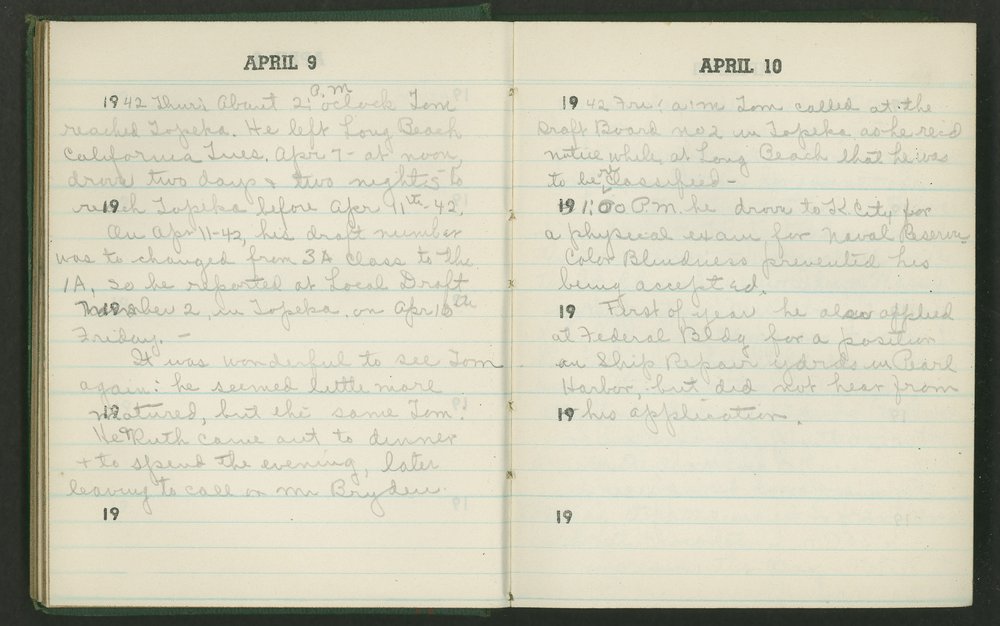 APRIL 9
P.M
1942 Thurs About 2: o'clock Tom
reached Topeka. He left Long Beach
California Tues, Apr 7- at noon,
drove two days & two nights to
19
reach Topeka before Apr 11th-42,
On Apr 11-42, his draft number
was to changed from 3A Class to the
1A, so he reported at Local Draft
19
Number 2, in Topeka, on Apr 10th
Friday. -
It was wonderful to see Tom
again: he seemed little more
19
matured, but the same Tom!
He & Ruth came out to dinner
+ to spend the evening, later
leaving to call on Mr Bryden.
19
APRIL 10
1942 Fri: a:m Tom called at the
Draft Board no 2 in Topeka, as he rec'd
notice while at Long Beach that he was
to be reclassified -
19 1:00 P.M. he drove to K City for
a physical exam, for Naval Reserve
Color Blindness prevented his
being accepted.
19 First of year he also applied
at Federal Bldg for a position
on Ship Repair yards in Pearl
Harbor, but did not hear from
19 his application.
19